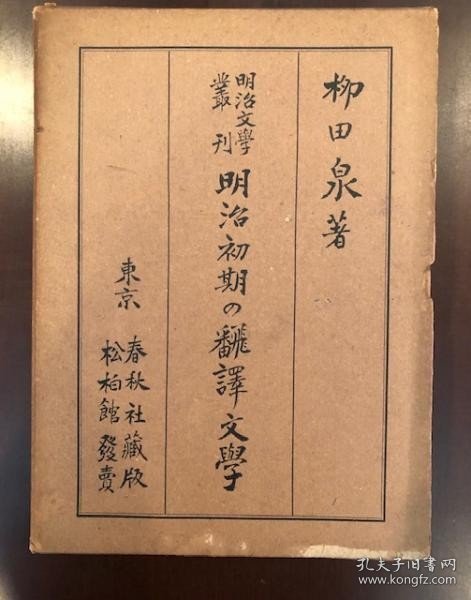 柳田泉著
明治文學
叢刊
明治初期の飜譯文學
東京
春秋社藏版
松柏館發賣
孔夫子旧书网
www.kongfz.com